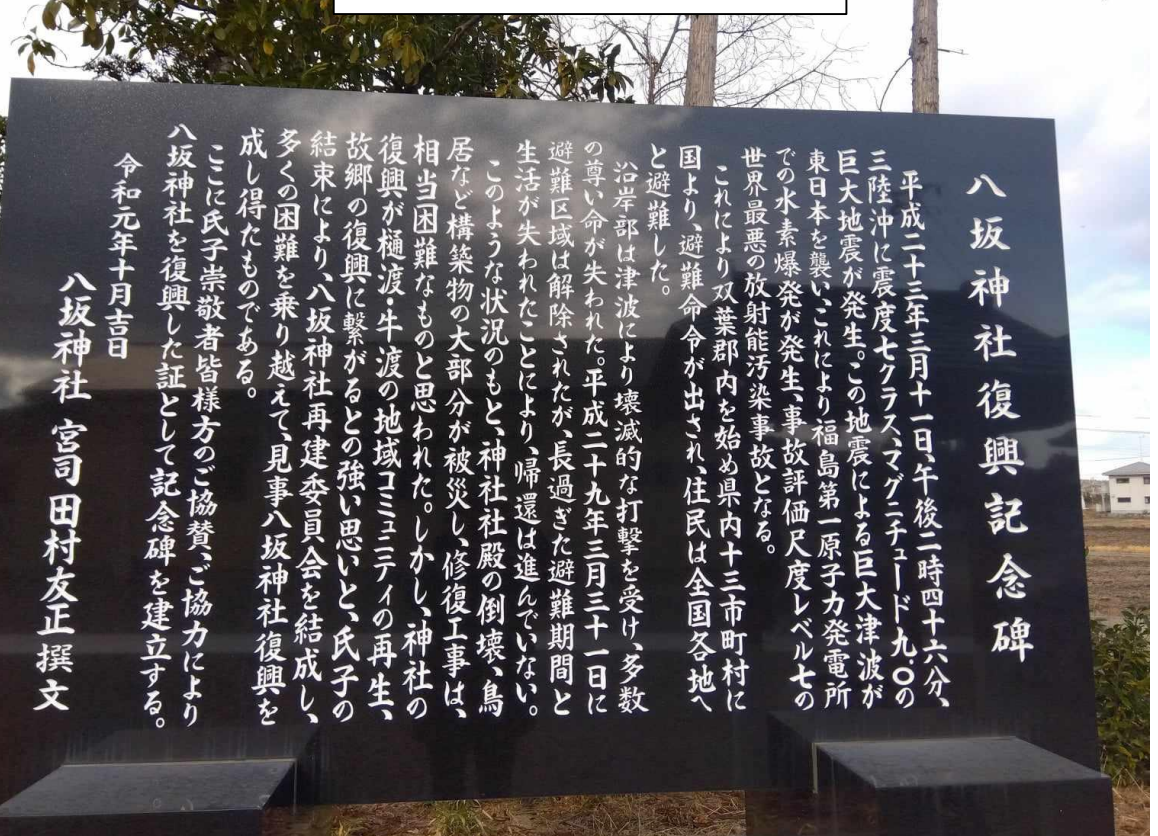 八坂神社復興記念碑
平成二十三年三月十一日、午後二時四十六分、
三陸沖に震度七クラス、マグニチュード九.〇の
巨大地震が発生。この地震による巨大津波が
東日本を襲い、これにより福島第一原子力発電所
での水素爆発が発生、事故評価尺度レベル七の
世界最悪の放射能汚染事故となる。
これにより双葉郡内を始め県内十三市町村に
国より、避難命令が出され、住民は全国各地へ
と避難した。
沿岸部は津波により壊滅的な打撃を受け、多数
の尊い命が失われた。平成二十九年三月三十一日に
避難区域は解除されたが、長過ぎた避難期間と
生活が失われたことにより、帰還は進んでいない。
このような状況のもと、神社社殿の倒壊、鳥
居など構築物の大部分が被災し、修復工事は、
相当困難なものと思われた。しかし、神社の
復興が樋渡・牛渡の地域コミュニティの再生、
故郷の復興に繋がるとの強い思いと、氏子の
結束により、八坂神社再建委員会を結成し、
多くの困難を乗り越えて、見事八坂神社復興を
成し得たものである。
ここに氏子崇敬者皆様方のご協賛、ご協力により
八坂神社を復興した証として記念碑を建立する。
令和元年十月吉日
八坂神社 宮司 田村友正 撰文